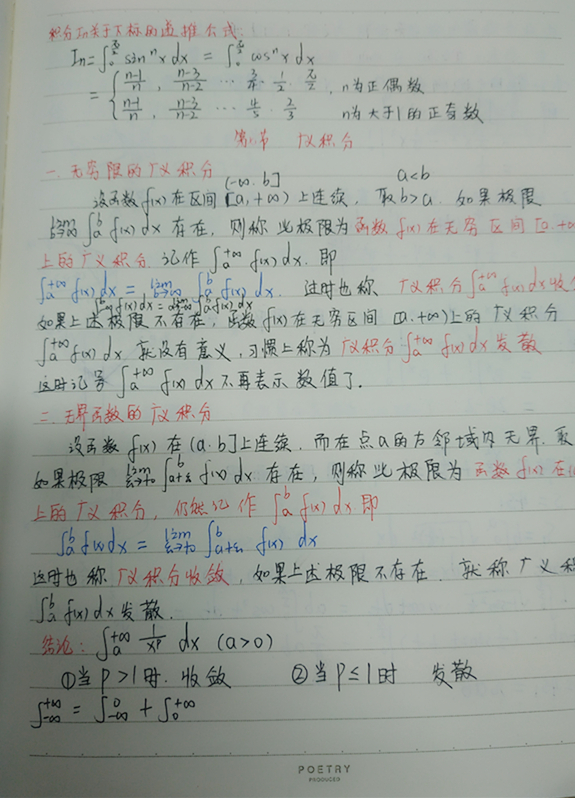 积分In关于下标的递推公式:
In = ∫₀^{π/2} sinⁿx dx = ∫₀^{π/2} cosⁿx dx
= { n-1/n , n-3/n-2 … 3/4 · 1/2 · π/2 , n为正偶数
n-1/n , n-3/n-2 … 4/5 · 2/3 n为大于1的正奇数
第 节 广义积分
一. 无穷限的广义积分
(-∞. b] a<b
设函数 f(x) 在区间 [a, +∞) 上连续, 取 b>a. 如果极限
lim b→+∞ ∫ₐᵇ f(x) dx 存在, 则称此极限为函数 f(x) 在无穷区间 [a. +∞
上的广义积分. 记作 ∫ₐ^{+∞} f(x) dx. 即
∫ₐ^{+∞} f(x) dx = lim b→+∞ ∫ₐᵇ f(x) dx. 这时也称 广义积分 ∫ₐ^{+∞} f(x) dx 收
∫_{-∞}^b f(x) dx = lim a→-∞ ∫ₐᵇ f(x) dx
如果上述极限不存在, 函数 f(x) 在无穷区间 [a. +∞) 上的广义积分
∫ₐ^{+∞} f(x) dx 就没有意义, 习惯上称为广义积分 ∫ₐ^{+∞} f(x) dx 发散
这时记号 ∫ₐ^{+∞} f(x) dx 不再表示数值了.
二. 无界函数的广义积分
设函数 f(x) 在 (a. b] 上连续. 而在点 a 的右邻域内无界. 取
如果极限 lim ε→+0 ∫_{a+ε}^b f(x) dx 存在, 则称此极限为函数 f(x) 在(
上的广义积分, 仍然记作 ∫ₐᵇ f(x) dx 即
∫ₐᵇ f(x) dx = lim ε→+0 ∫_{a+ε}^b f(x) dx
这时也称广义积分收敛, 如果上述极限不存在. 就称广义积
∫ₐᵇ f(x) dx 发散.
结论: ∫ₐ^{+∞} 1/x^p dx (a>0)
①当 P>1 时. 收敛 ②当 P≤1 时 发散
∫_{-∞}^{+∞} = ∫_{-∞}^0 + ∫₀^{+∞}
POETRY
PRODUCED